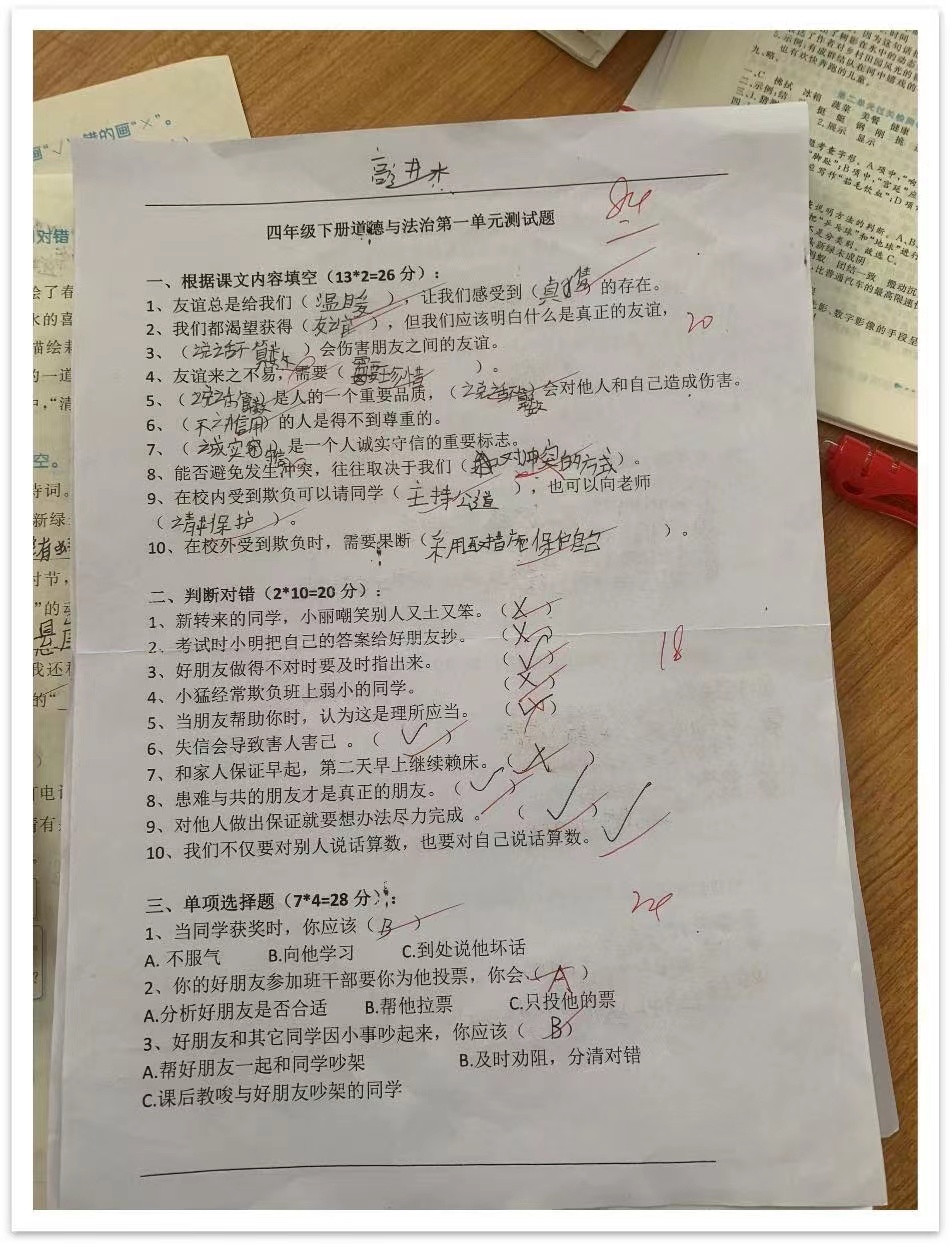 画"√
错的画"×"。
对错
会了春
水的喜
描绘耒
的一道
中,"清
空。
诗词。
新绿
时节,
"的
我还
的"
电
九、略。
一、C 桃 拭 冰箱 蔬菜 美餐 健康
2.展示 显示
高井水
84
四年级下册道德与法治第一单元测试题
一、根据课文内容填空（13*2=26 分）：
1、友谊总是给我们（温暖），让我们感受到（真情 的存在。
2、我们都渴望获得（友谊），但我们应该明白什么是真正的友谊，
20
3、（说话不算数）会伤害朋友之间的友谊。
4、友谊来之不易，需要（需要珍惜）。
5、（说话算数）是人的一个重要品质，（说话不算数）会对他人和自己造成伤害。
6、（不守信用）的人是得不到尊重的。
7、（诚实）是一个人诚实守信的重要标志。
8、能否避免发生冲突，往往取决于我们（面对冲突的方式）。
9、在校内受到欺负可以请同学（主持公道），也可以向老师
（请求保护）。
10、在校外受到欺负时，需要果断（采用 措施保护自己）。
二、判断对错（2*10=20 分）：
1、新转来的同学，小丽嘲笑别人又土又笨。（×）
2、考试时小明把自己的答案给好朋友抄。（×）
18
3、好朋友做得不对时要及时指出来。（√）
4、小猛经常欺负班上弱小的同学。（×）
5、当朋友帮助你时，认为这是理所应当。（×）
6、失信会导致害人害己 。（√）
7、和家人保证早起，第二天早上继续赖床。（×）
8、患难与共的朋友才是真正的朋友。（√）
9、对他人做出保证就要想办法尽力完成 。（√）
10、我们不仅要对别人说话算数，也要对自己说话算数。√
三、单项选择题（7*4=28 分）：
24
1、当同学获奖时，你应该（B）
A. 不服气 B.向他学习 C.到处说他坏话
2、你的好朋友参加班干部要你为他投票，你会（A）
A.分析好朋友是否合适 B.帮他拉票 C.只投他的票
3、好朋友和其它同学因小事吵起来，你应该（B）
A.帮好朋友一起和同学吵架 B.及时劝阻，分清对错
C.课后教唆与好朋友吵架的同学